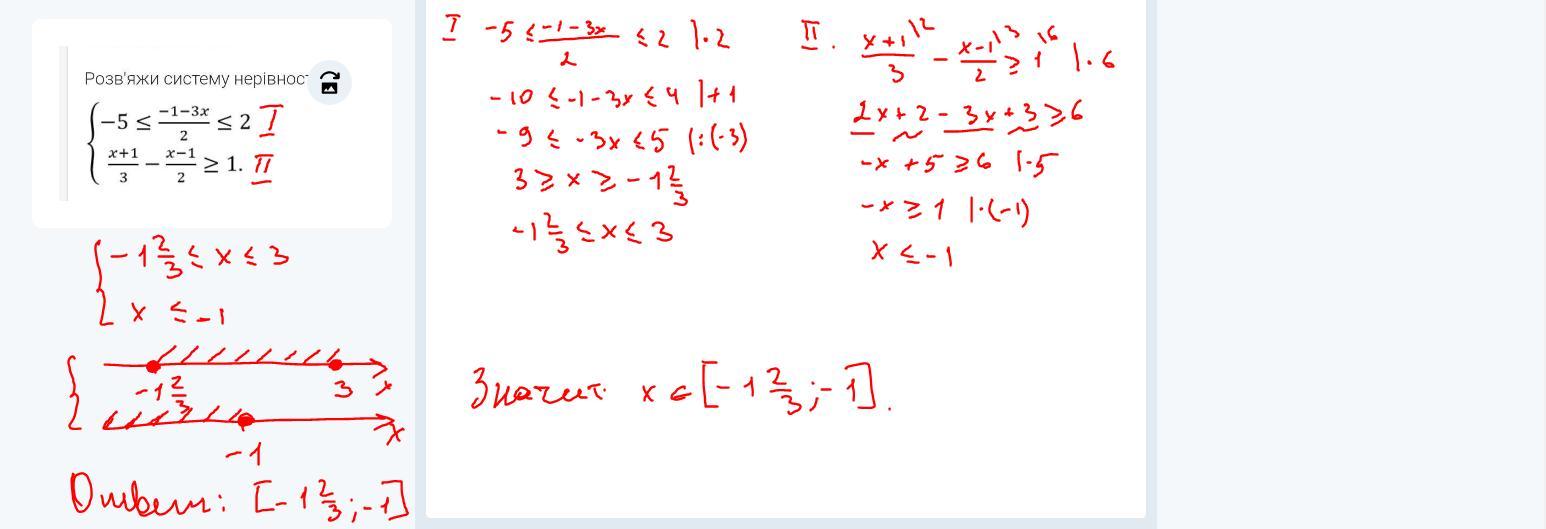 Розв'яжи систему нерівност
{ −5 ≤ (−1−3x)/2 ≤ 2 I
(x+1)/3 − (x−1)/2 ≥ 1. II
{ -1 2/3 ≤ x ≤ 3
x ≤ -1
-1 2/3 3 x
-1 x
Ответ: [-1 2/3; -1]
I -5 ≤ (-1-3x)/2 ≤ 2 |·2
-10 ≤ -1-3x ≤ 4 |+1
-9 ≤ -3x ≤ 5 |:(-3)
3 ≥ x ≥ -1 2/3
-1 2/3 ≤ x ≤ 3
II. (x+1)/3 \2 - (x-1)/2 \3 ≥ 1 \6 |·6
2x+2 - 3x+3 ≥ 6
-x+5 ≥ 6 |-5
-x ≥ 1 |·(-1)
x ≤ -1
Значит x ∈ [-1 2/3; -1].